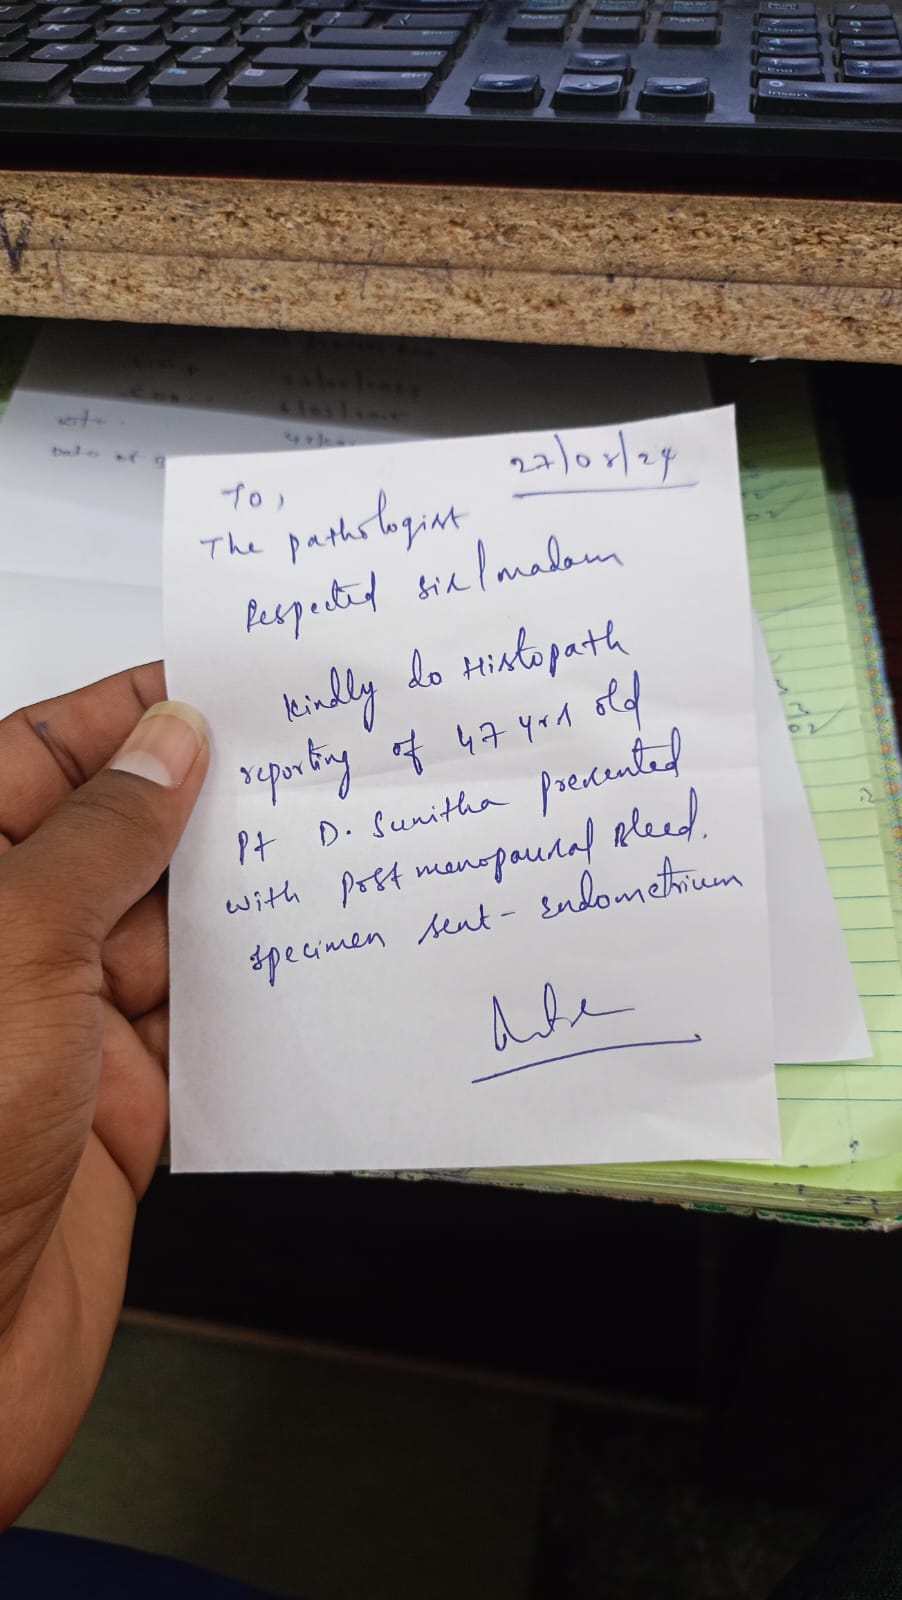 27/08/24
To,
The pathologist
Respected sir/madam
Kindly do Histopath
reporting of 47 yrs old
Pt D. Sunitha presented
with Post menopausal Bleed.
specimen sent - Endometrium